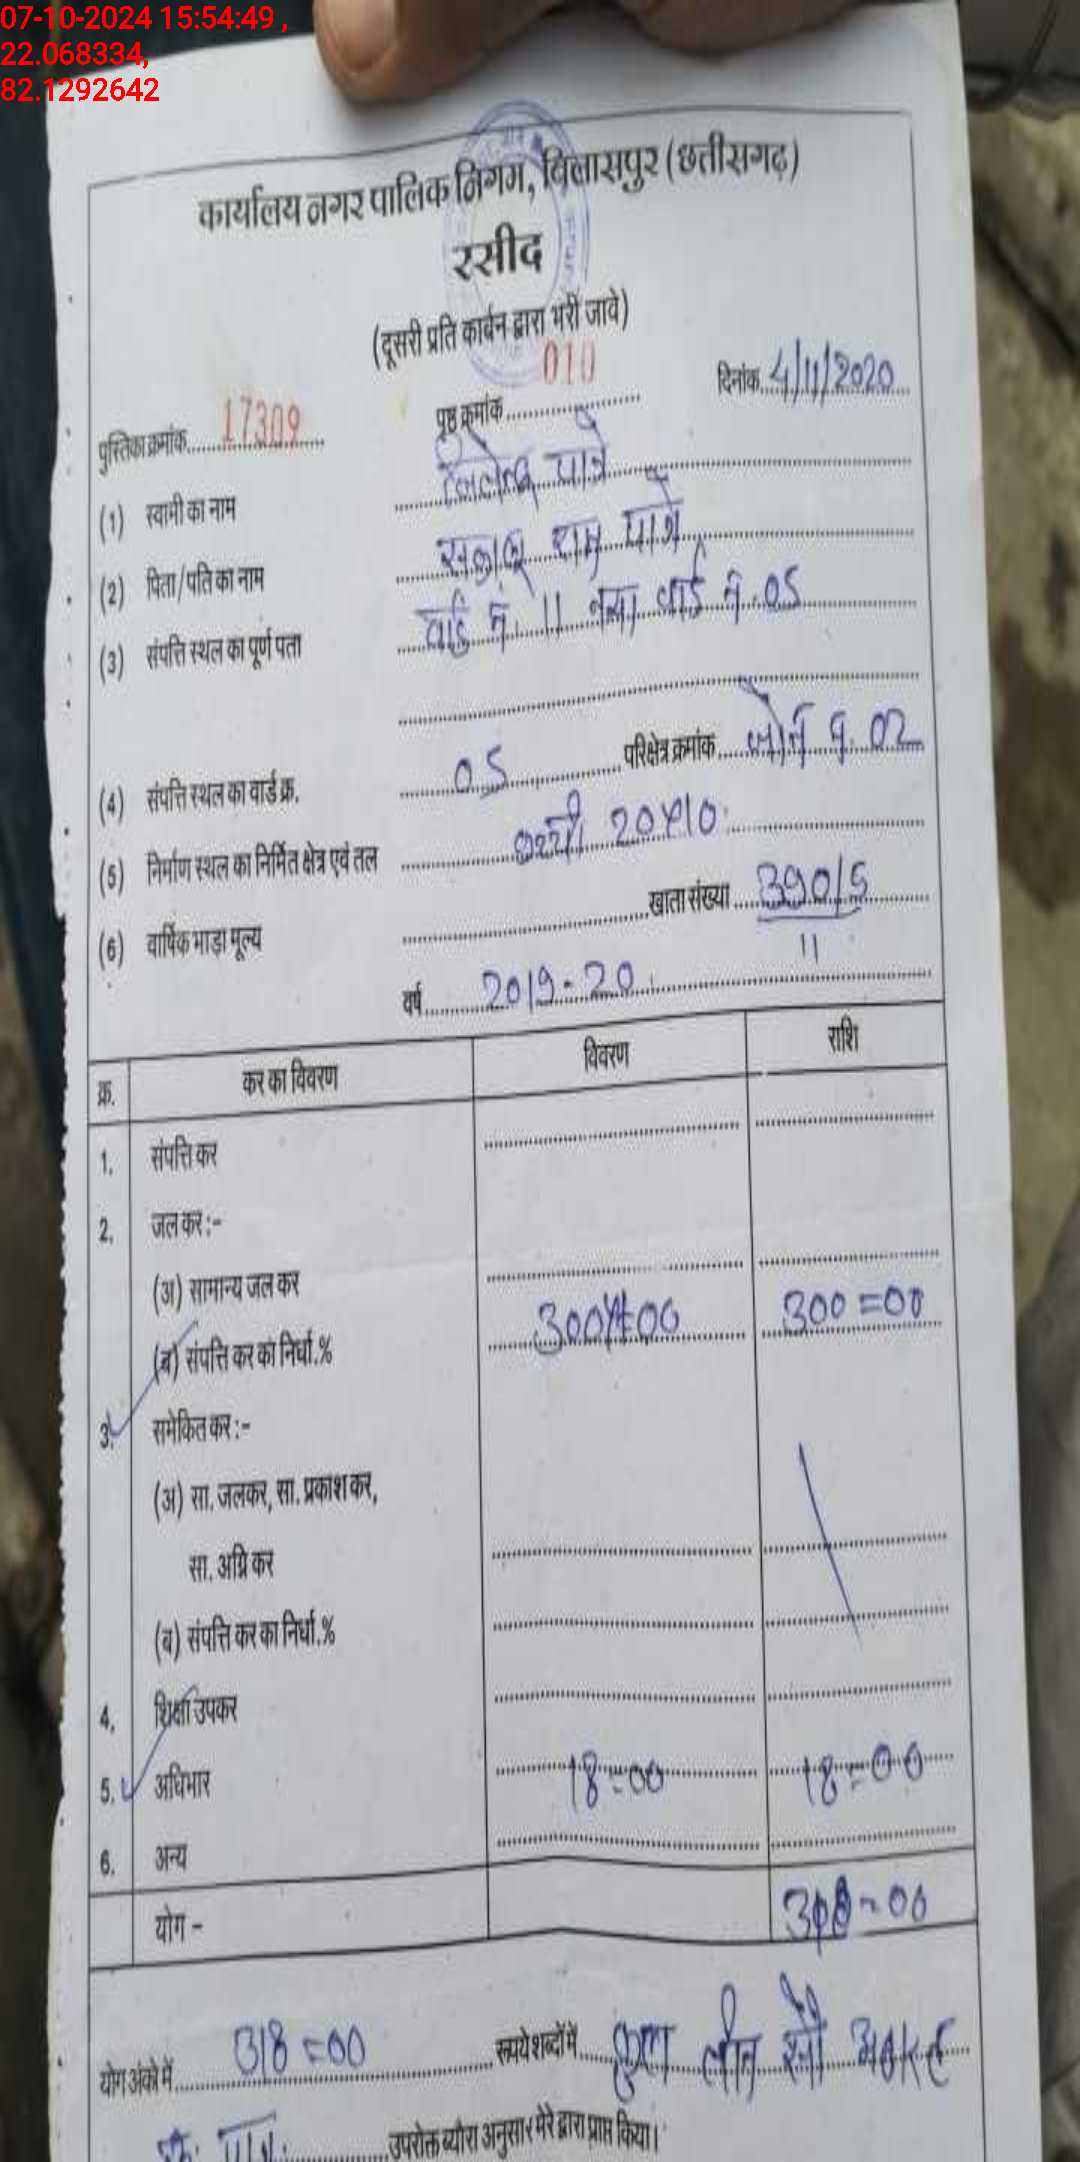 07-10-2024 15:54:49 ,
22.068334,
82.1292642
कार्यालय नगर पालिक निगम, बिलासपुर (छत्तीसगढ़)
रसीद
(दूसरी प्रति कार्बन द्वारा भरी जावे)
पुस्तिका क्रमांक 17309 पृष्ठ क्रमांक 010 दिनांक 4/11/2020
(1) स्वामी का नाम पात्रे
(2) पिता/पति का नाम राम पात्रे
(3) संपत्ति स्थल का पूर्ण पता वार्ड नं. 11 नया वार्ड नं. 05
(4) संपत्ति स्थल का वार्ड क्र. 05 परिक्षेत्र क्रमांक जोन नं. 02
(5) निर्माण स्थल का निर्मित क्षेत्र एवं तल
(6) वार्षिक भाड़ा मूल्य खाता संख्या 390/5
11
वर्ष 2019-20
क्र. कर का विवरण विवरण राशि
1. संपत्ति कर
2. जल कर :-
(अ) सामान्य जल कर
(ब) संपत्ति कर का निर्धा.% 300=00
3. समेकित कर :-
(अ) सा. जलकर, सा. प्रकाश कर,
सा. अग्नि कर
(ब) संपत्ति कर का निर्धा.%
4. शिक्षा उपकर
5. अधिभार 18=00 18=00
6. अन्य
योग - 318=00
योग अंको में 318=00 रूपये शब्दों में कुल तीन सौ
उपरोक्त ब्यौरा अनुसार मेरे द्वारा प्राप्त किया।